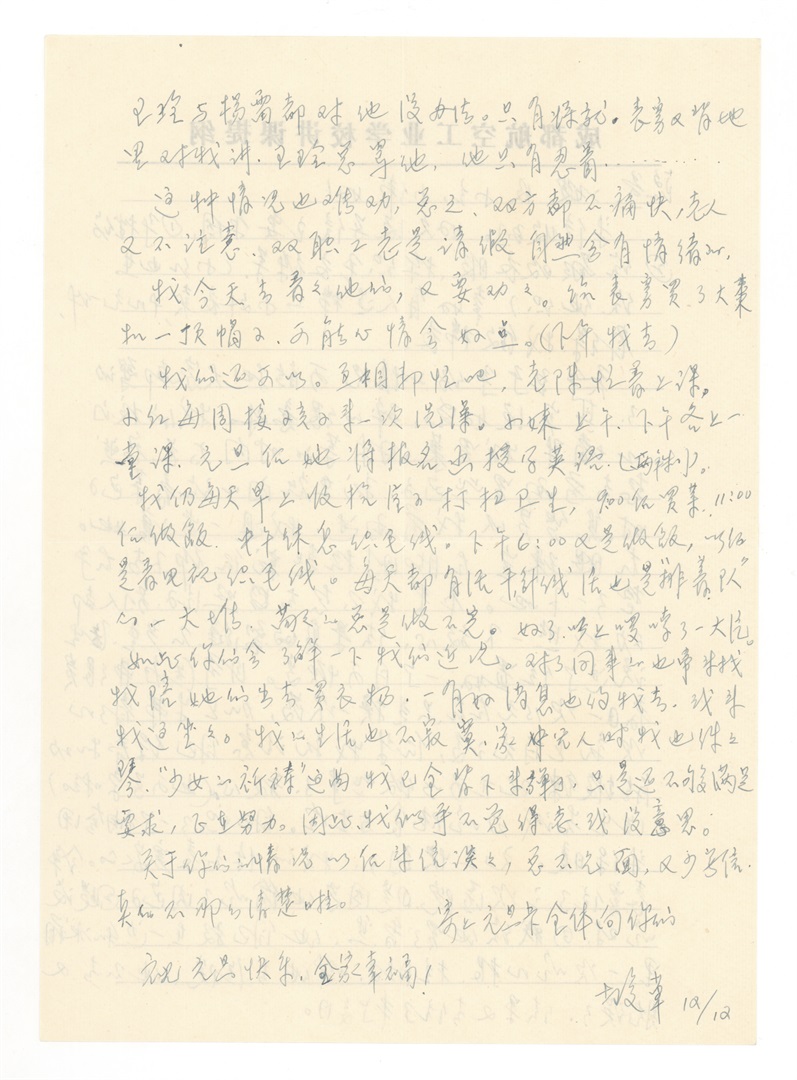 王玲与杨雷都对他没办法。只有将就。表弟又背地
里对我讲.王玲总骂他,他只有忍着............
这种情况也难劝,总之.双方都不痛快,老人
又不注意.双职工老是请假自然会有情绪的,
我今天去看看他们,又要劝劝。给表弟买了大
一顶帽子.可能心情会好点。(下午我去)
我们还可以。互相都忙吧,老陈忙着上课,
小红每周接孩子来一次洗澡。小妹上午.下午各上一
堂课.元旦后她将报名 英语.
我仍每天早上收捡屋子打扫卫生,9:00后买菜.11:00
后做飯.中午休息织毛线。下午6:00又是做飯,以后
是看电视织毛线。每天都有活干,针线活也是"排着队"
的一大堆. 总是做不完。好了.以上啰嗦了一大篇。
如此你们会了解一下我们近况。对了同事们也常来找
我陪她们出去买衣物.一有好消息也约我去.或来
我这坐坐。我的生活也不寂寞.家中无人时我也弹弹
琴."少女的祈祷"这曲我已全背下来弹了.只是还不够满足
要求,正在努力。因此.我似乎不觉得 或没意思。
关于你们的情况以后来信谈谈,总不见面,又少写信.
真的不那么清楚啦。
寄上元旦卡全体向你们
祝元旦快乐.全家幸福!
12/12
成都航空工业学校讲课提纲